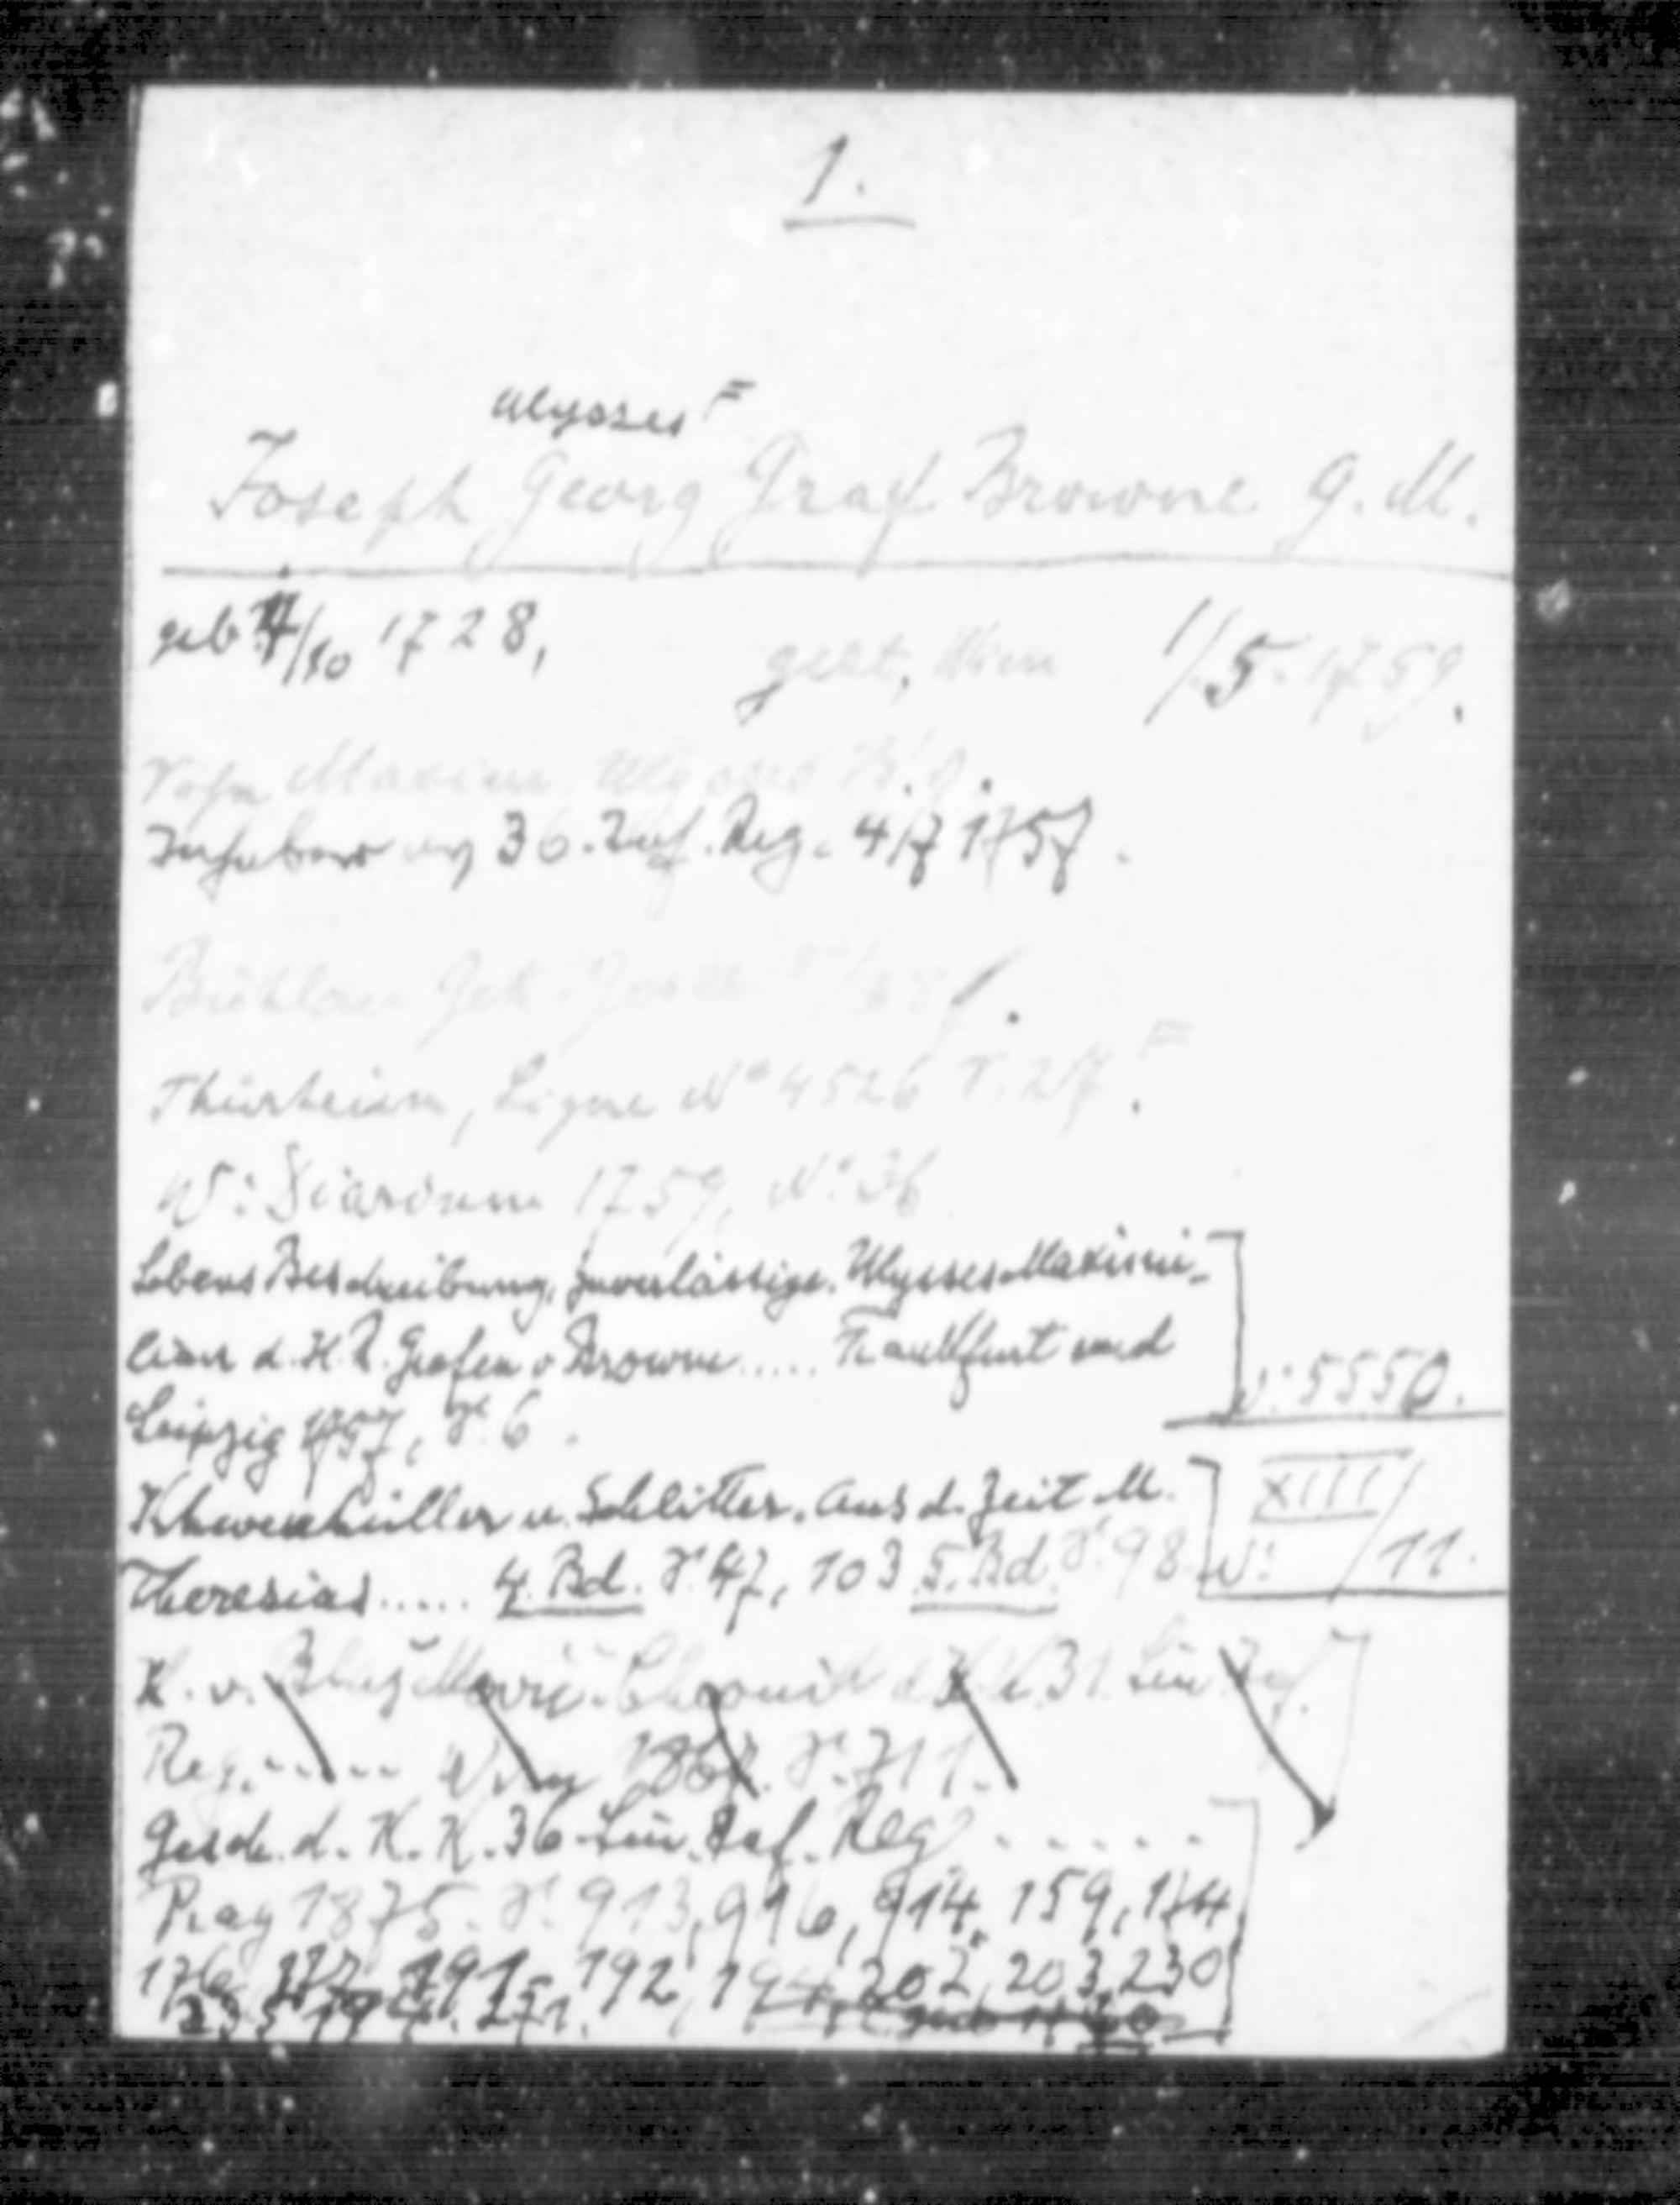 1.
Ulysses F
Joseph Georg Graf Browne G.M.
geb. 4/10 1728, gest. Wien 1/5. 1759.
Sohn Maxim. Ulysses
Inhaber 36. Inf. Reg. 4/7 1757.
Thürheim, Ligne No 4526 S. 27 F
W: Diarium 1759, No: 36
Lebens Beschreibung, zuverlässige. Ulysses Maximi-
lians d. H. R. Grafen v Browne ..... Frankfurt und
Leipzig 1757, S. 6. N: 5550.
Khevenhüller u. Schlitter. Aus d. Zeit M. XIII/
Theresias ..... 4. Bd. S. 47, 103 5. Bd. S. 98 N: 11.
K. v. Blažeković Chronik d. K. K. 31. Lin. Inf.
Reg. ..... Wien 1867. S. 711.
Gesch. d. K. K. 36 Lin. Inf. Reg .....
Prag 1875. S. 913, 916, 914, 159, 174,
176, 177, 191, 192, 194, 202, 203, 230
271.